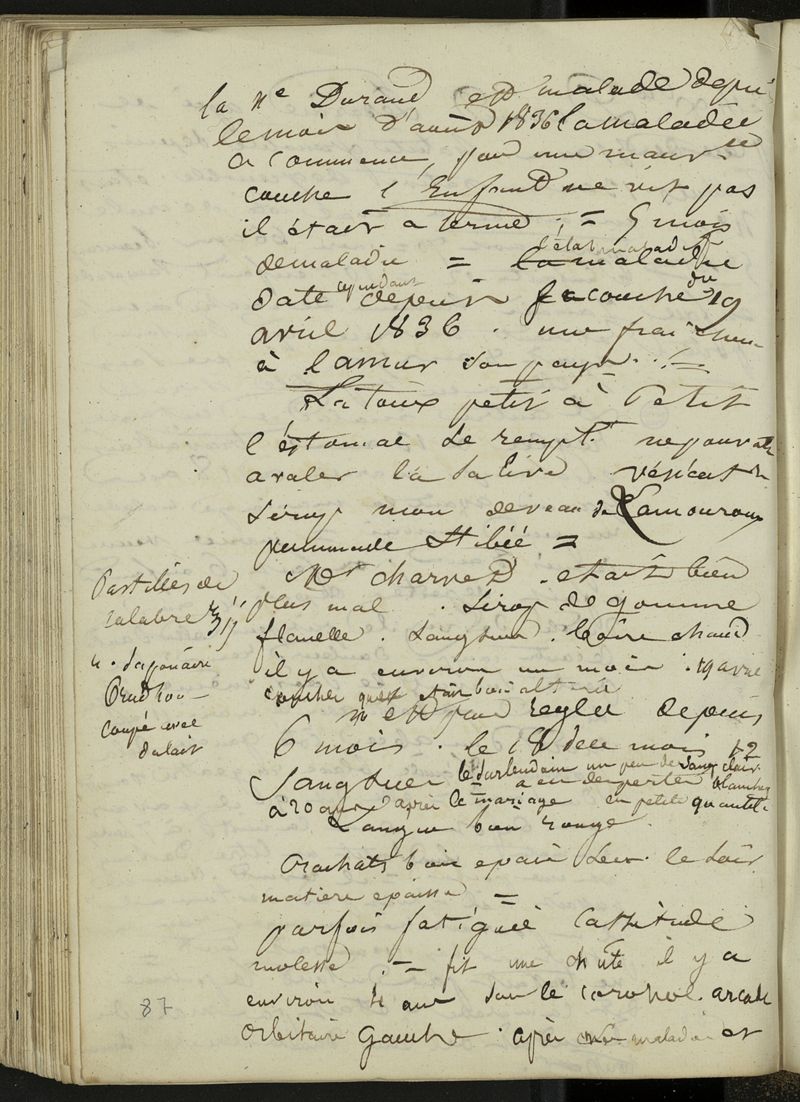 la Me Durand est malade depui
le mois d'août 1836 la maladie
a commencé, par une mauvse
couche l'Enfant ne vit pas
il était a terme ; = 5 mois
de maladie = l'état maladif
la maladie
date cependant depuis sa couche du 19
avril 1836 . une fraicheur
à l'amur son pays . . =
La toux petit à Petit
l'éstomac se rempt. ne pouvait
avaler la salive vésicat
Sirop mou de veau de Lamouroux
pommade stibiée =
Mr Charvet . etait bien
plus mal . Sirop de gomme
flanelle . sangsues . boire chaud
il y a environ un mois . 19 avril
couchée
n'est pas reglee depuis
6 mois . le 18 de ce mois 12
Sangsues le surlendain un peu de sang clair
a eu des pertes blanches
à 20 ans d'après le mariage en petite quantité
Langue bien rouge .
Crachats bien epais le soir
matiere epaisse =
parfois fatiguée lassitude
molesse . = fit une chûte il y a
environ 4 ans sur le arcade
Orbitaire gauche . après maladie et
Pastilles de
calabre ʒij
4 . Saponaire
Orud hou —
coupé avec
du lait
87